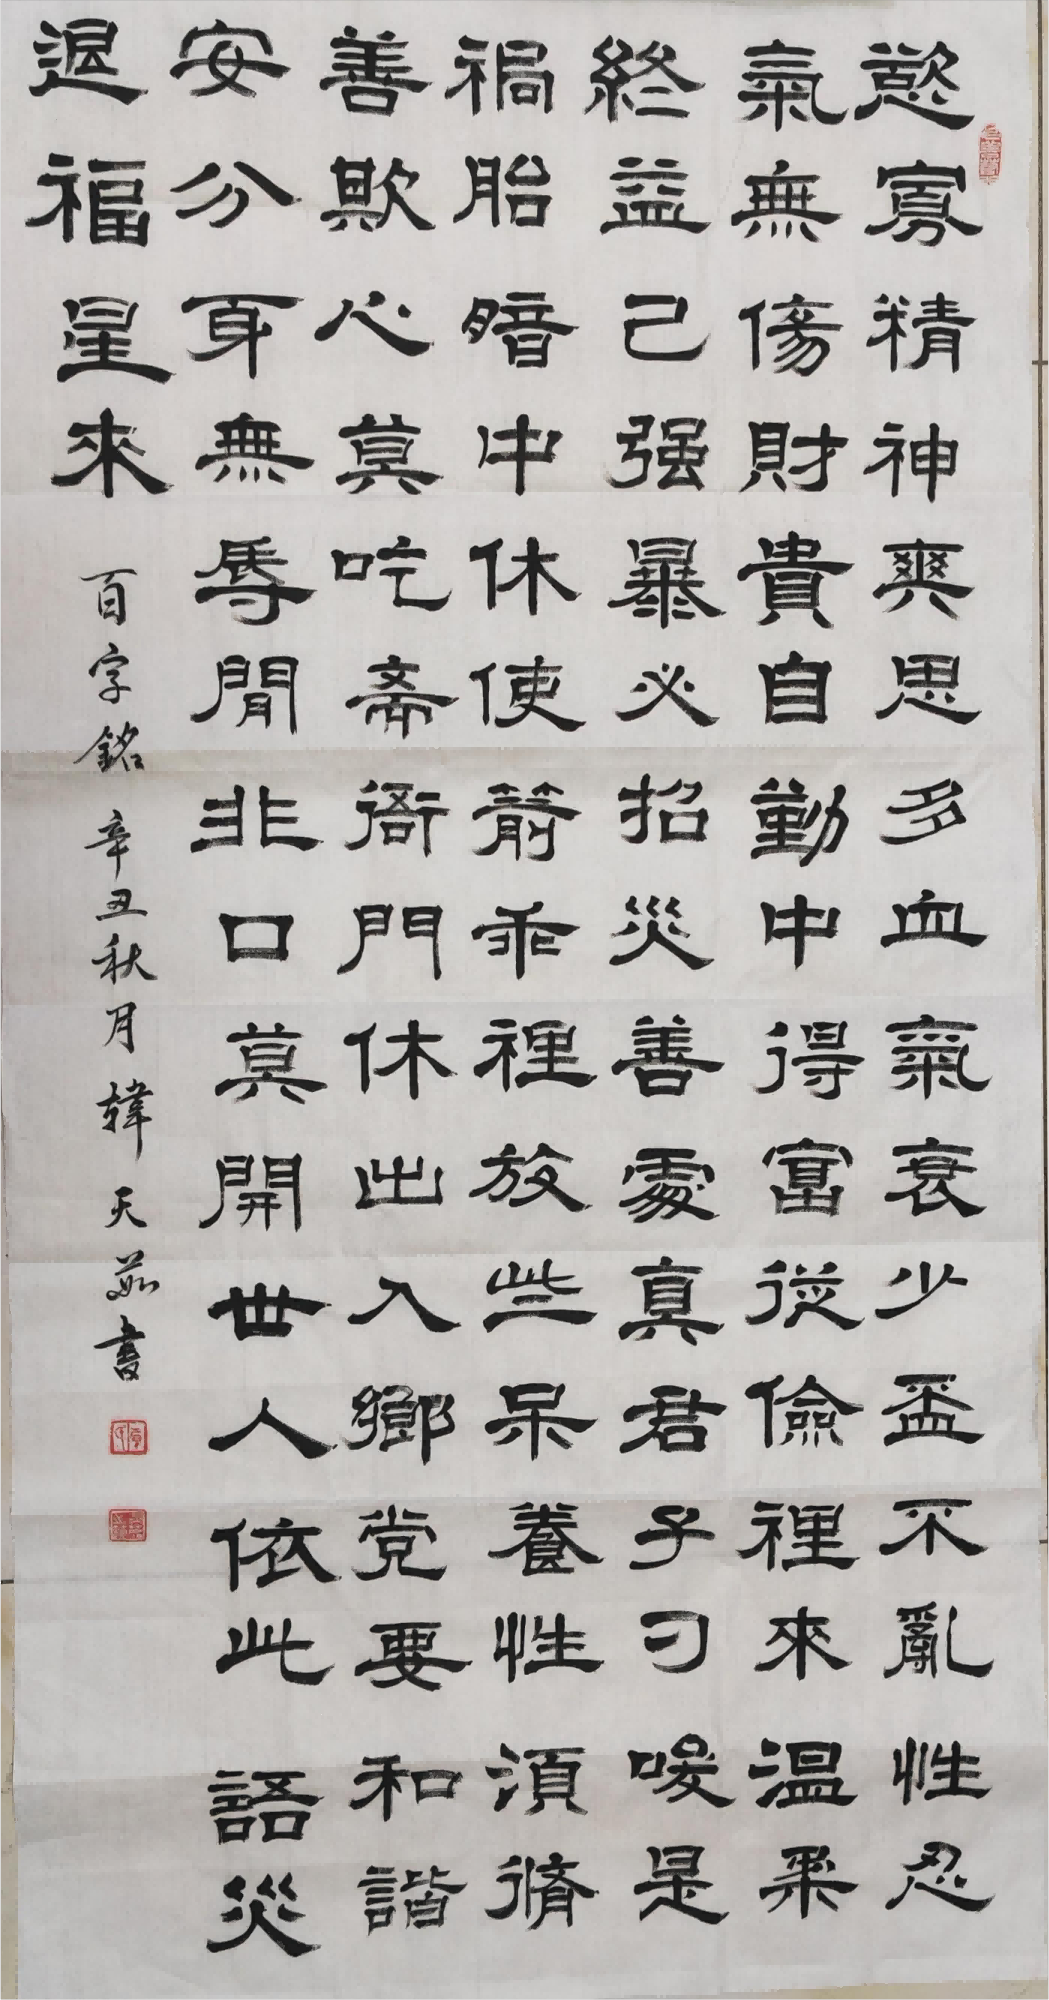 慾寡精神爽思多血氣衰少盃不亂性忍
氣無傷財貴自勤中得富從儉裡來温柔
終益己强暴必招災善處真君子刁唆是
禍胎暗中休使箭乖裡放些呆養性須脩
善欺心莫吃斋衙門休出入鄉党要和諧
安分身無辱閒非口莫開世人依此語災
退福星來
百字銘 辛丑秋月 韓天茹書